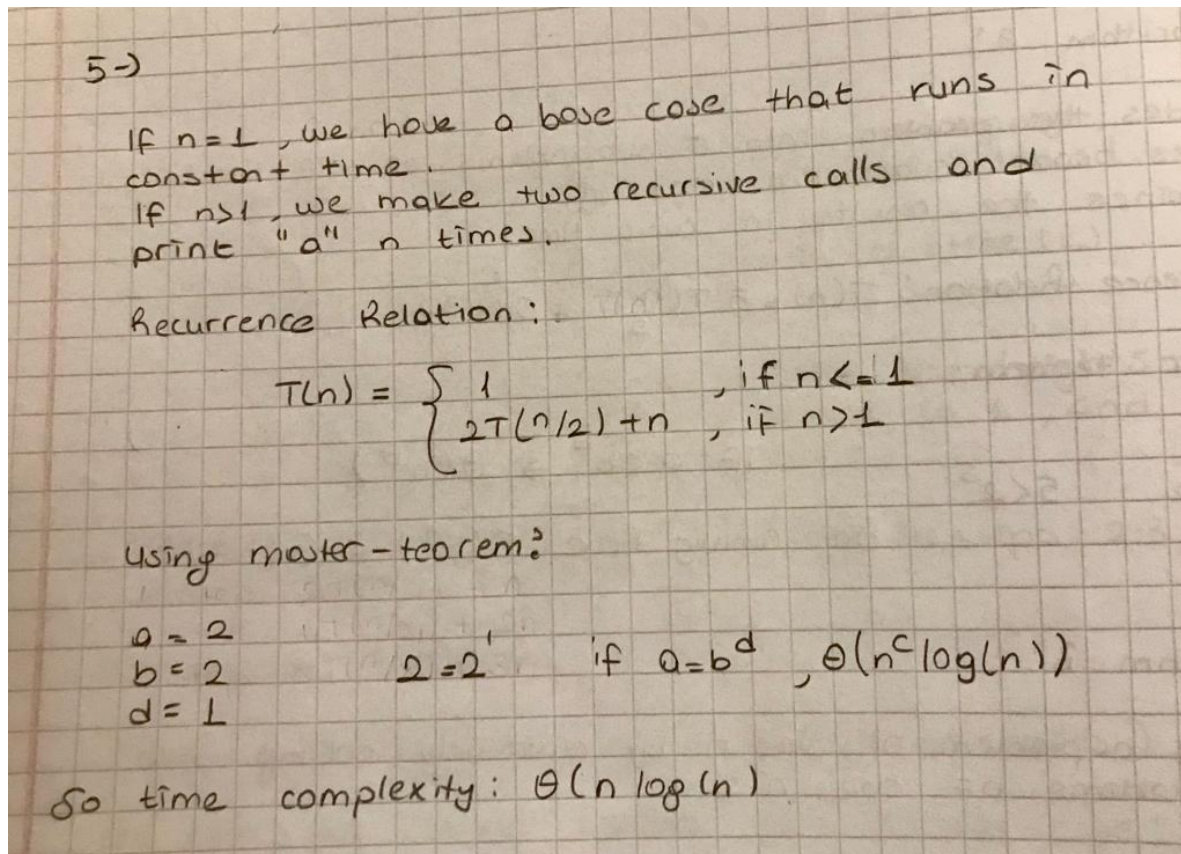 5-)
If n=1, we have a base case that runs in
constant time.
If n>1, we make two recursive calls and
print "a" n times.
Recurrence Relation:
T(n) = { 1 , if n<=1
2T(n/2)+n , if n>1
using master-teorem:
a = 2
b = 2 2=2¹ if a=b^d , Θ(n^c log(n))
d = 1
So time complexity: Θ(n log(n)